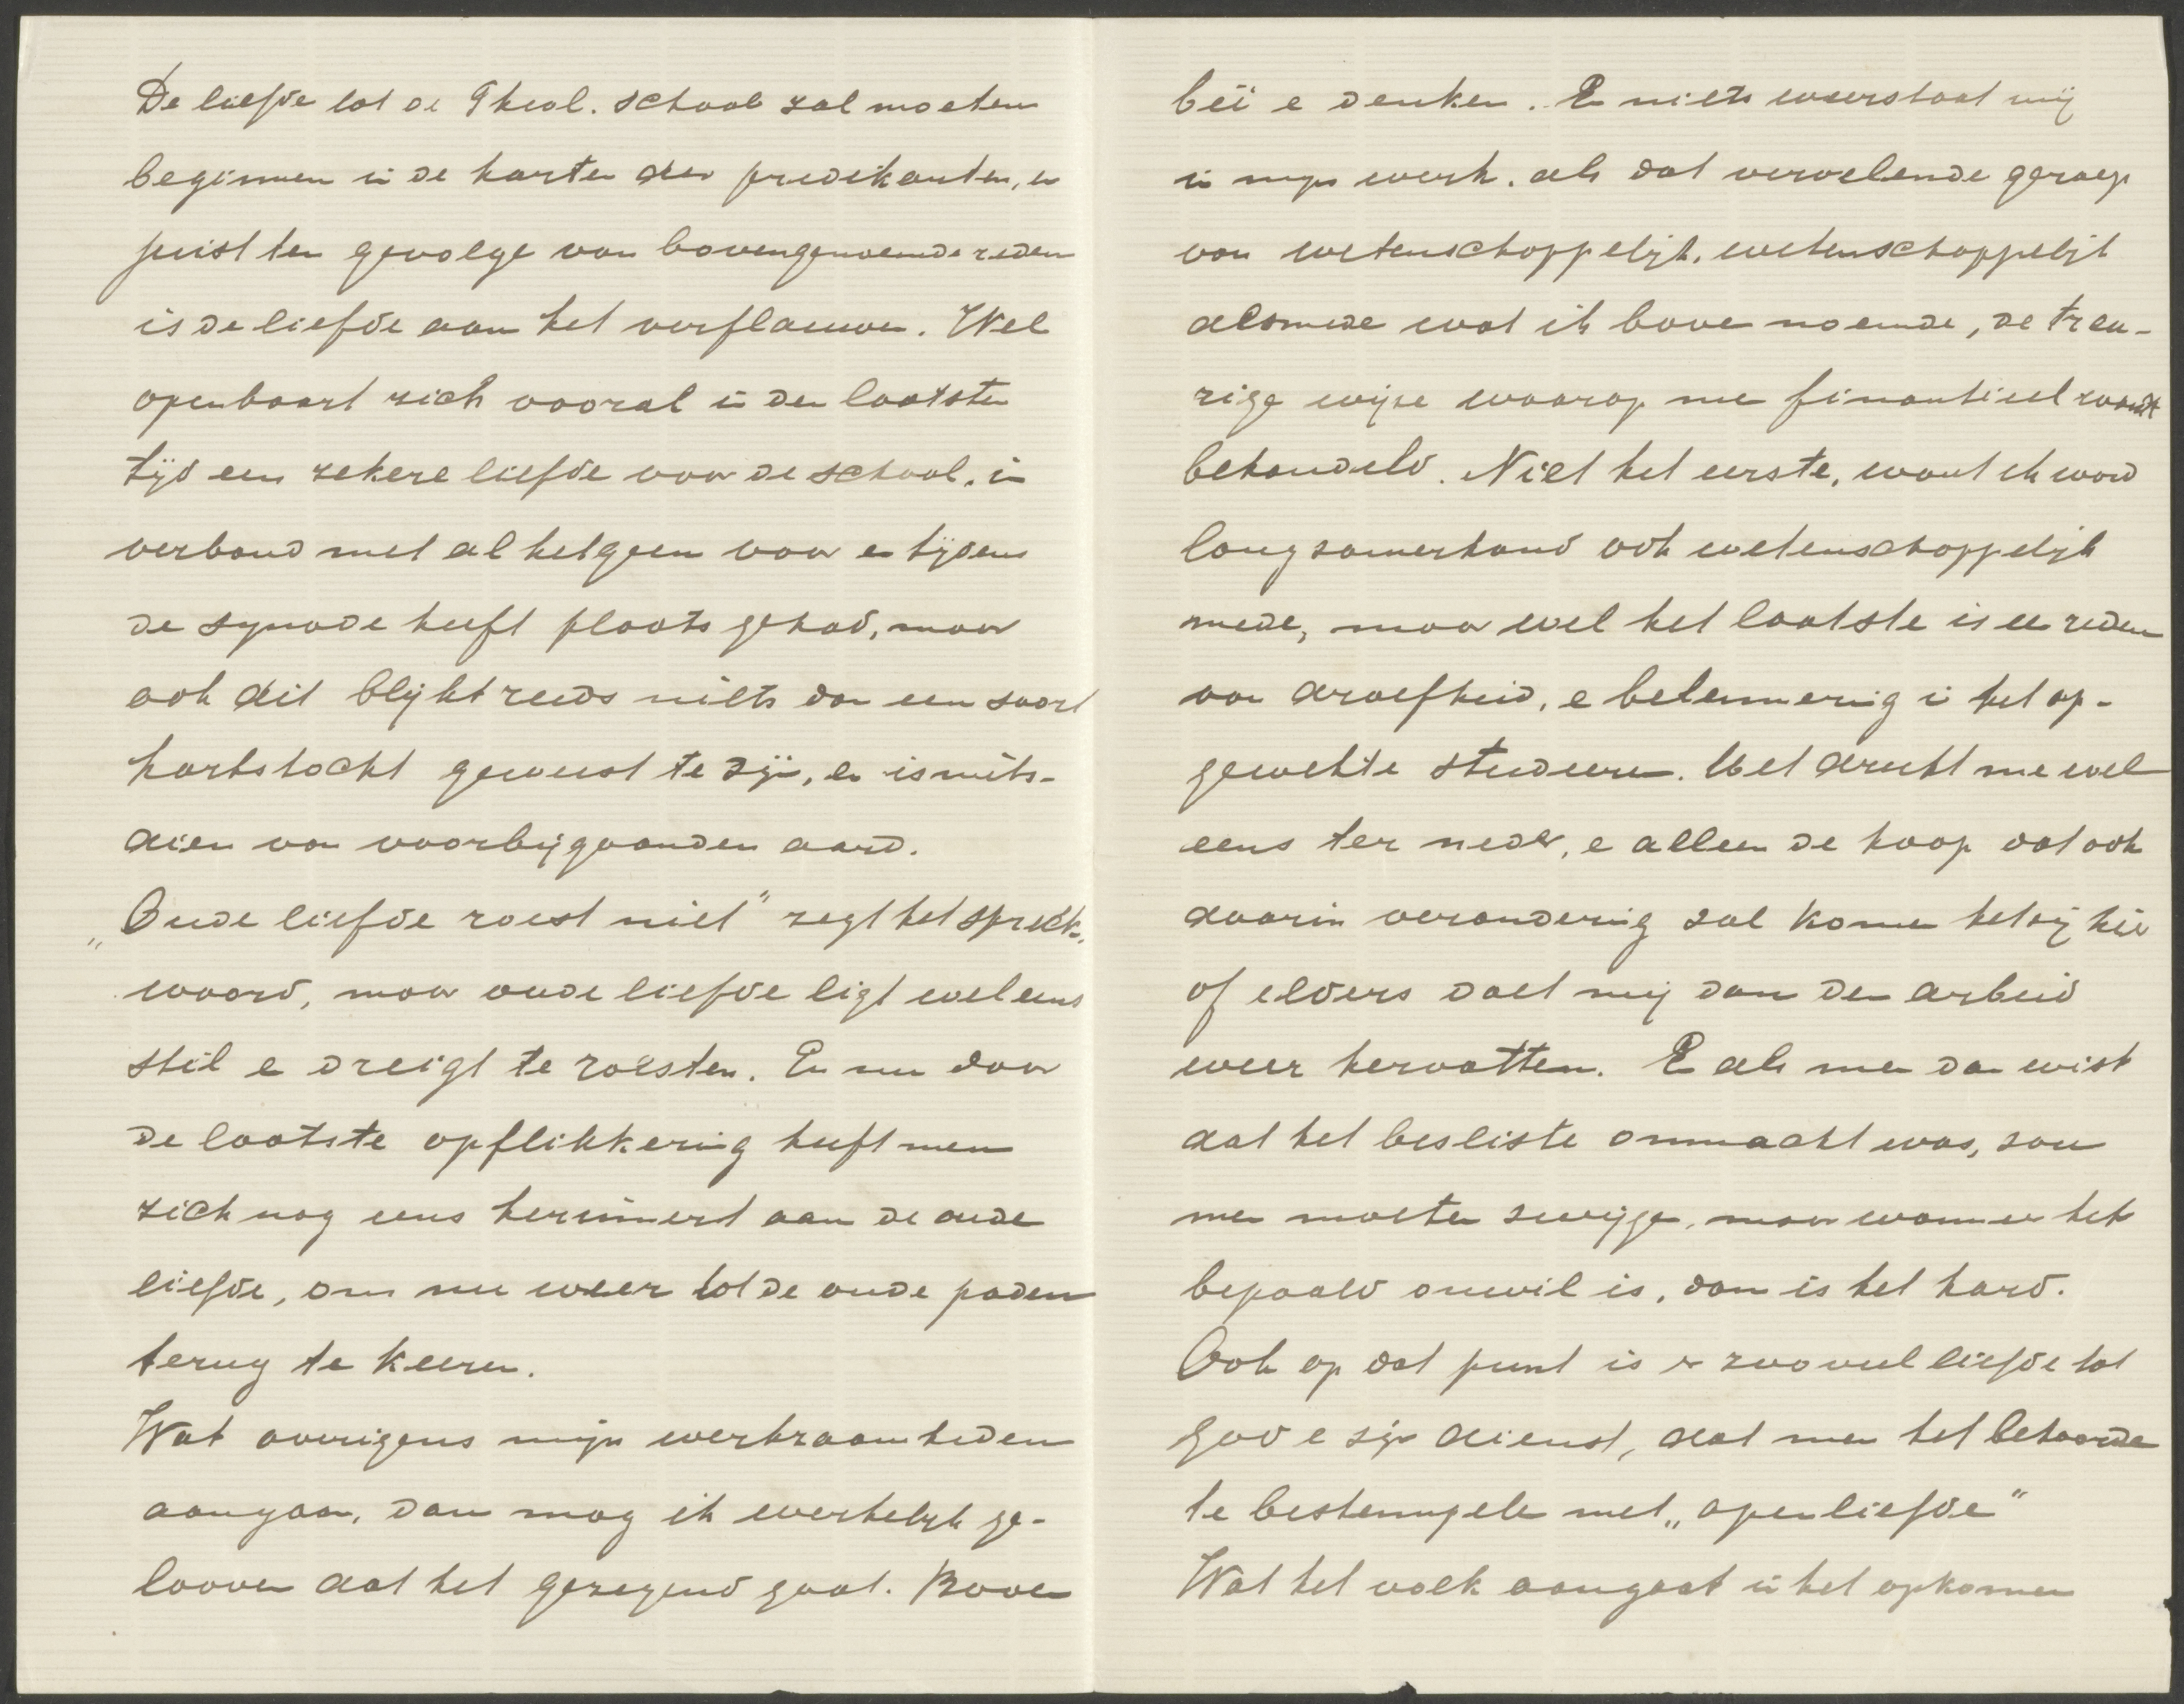 De liefde tot de Theol. school zal moeten
beginnen in de harten der predikanten, en
juist ten gevolge van bovengenoemde reden
is de liefde aan het verflauwen. Wel
openbaart zich vooral in den laatsten
tijd een zekere liefde voor de school, in
verband met al hetgeen voor en tijdens
de synode heeft plaats gehad, maar
ook dit blijkt reeds niets dan een soort
hartstocht geweest te zijn, en is mits-
dien van voorbijgaanden aard.
„Oude liefde roest niet" zegt het spreek-
woord, maar oude liefde ligt wel eens
stil e dreigt te roesten. En nu door
de laatste opflikkering heeft men
zich nog eens herinnerd aan de oude
liefde, om nu weer tot de oude paden
terug te keeren.
Wat overigens mijn werkzaamheden
aangaan, dan mag ik werkelijk ge-
looven dat het gezegend gaat. Boven
beïe denken. En niets weerstaat mij
in mijn werk, als dat vervelende geroep
van wetenschappelijk, wetenschappelijk
alsmede wat ik bove noemde, de treu-
rige wijze waarop me finantieel wordt
behandeld. Niet het eerste, want ik word
langzamerhand ook wetenschappelijk
mede, maar wel het laatste is ee reden
van droefheid, e belemmering i het op-
gewekte studeeren. Het drukt me wel
eens ter neder, e alleen de hoop dat ook
daarin verandering zal komen hetzij hier
of elders doet mij dan den arbeid
weer hervatten. E als men dan wist
dat het besliste onmacht was, zou
men moeten zwijgen, maar wanneer het
bepaald onwil is, dan is het hard.
Ook op dat punt is er zooveel liefde tot
God e zijn dienst, dat men het behoorde
te bestempelen met „apenliefde"
Wat het volk aangaat in het opkomen